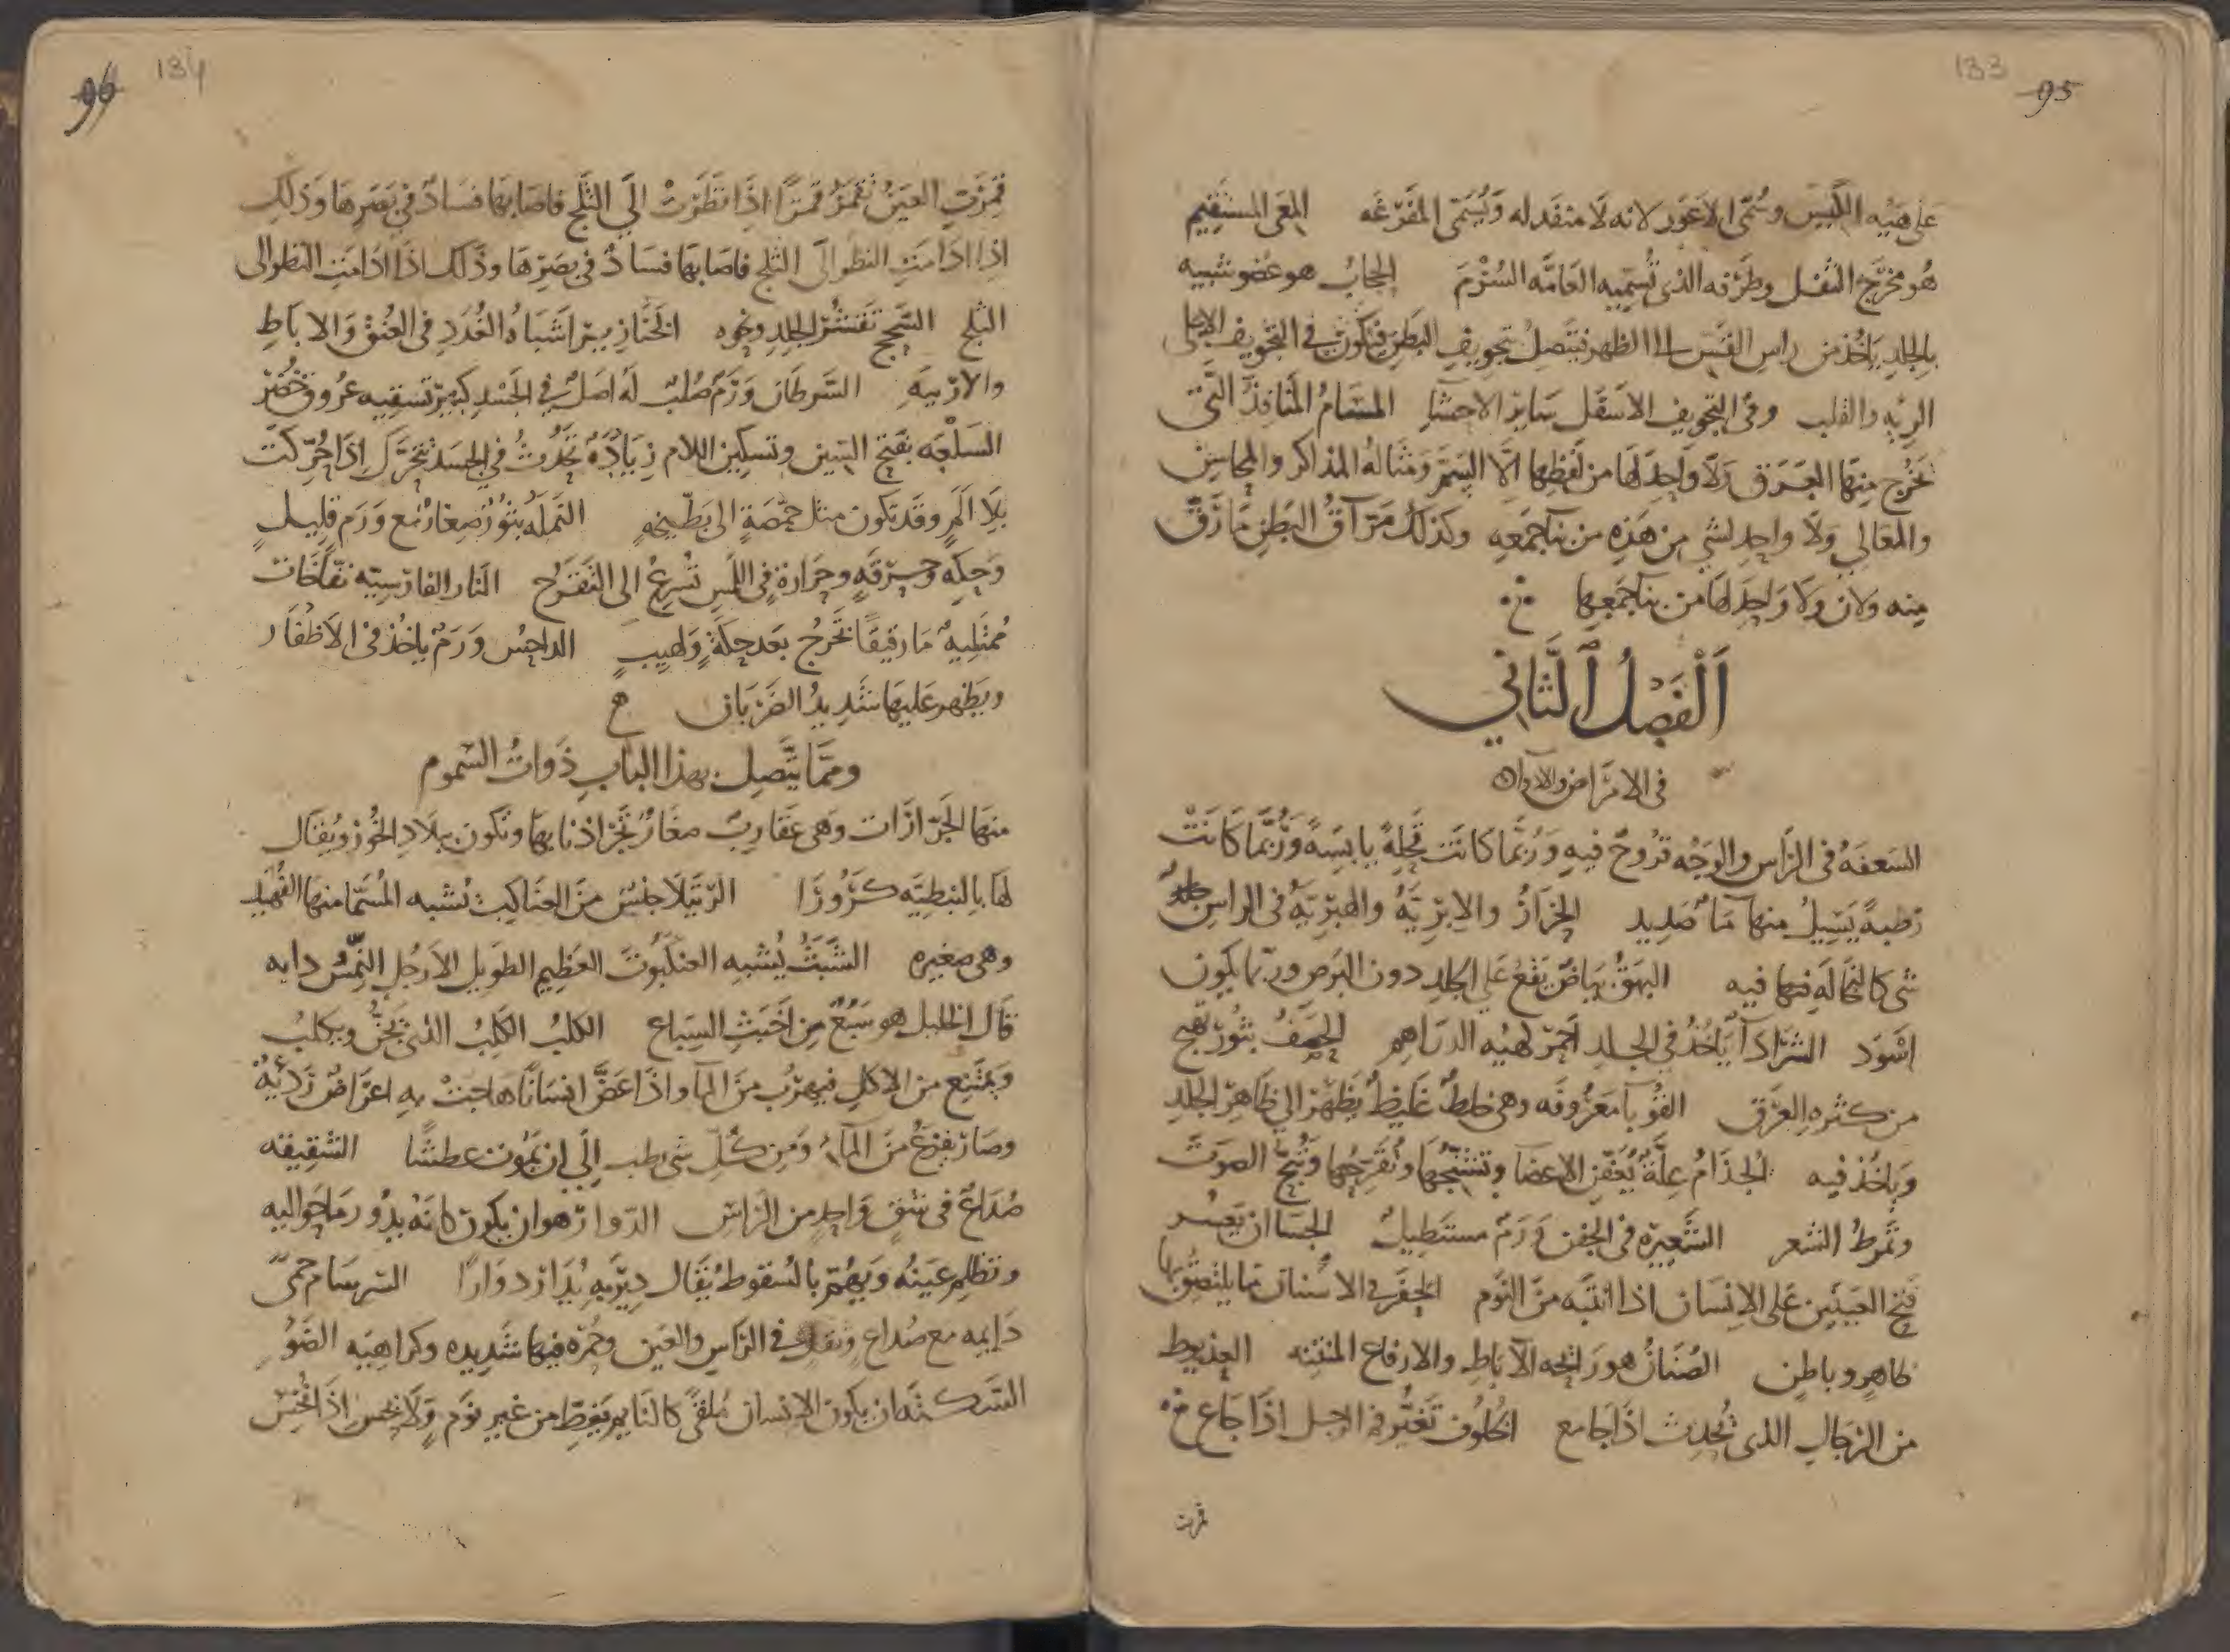 133
95
على هيئه الكيس وسمى الاعور لانه لا منفد له ويسمى المفرغه المعى المستقيم
هو مخرج الثفل وطرفه الذى تسميه العامه السرم الحجاب هو عضو شبيه
بالجلد ياخذ من راس القس الى الظهر فيتصل بتجويف البطن فيكون فى التجويف الاعلى
الريه والقلب وفى التجويف الاسفل ساير الاحشا المسام المنافذ التى
يخرج منها العرق ولا واحد لها من لفظها الا السم ومثاله المذاكر والمحاسن
والمعالي ولا واحد لشي من هذه من بنا جمعه وكذلك مراق البطن ما رق
منه ولان ولا واحد لها من بنا جمعها
الفصل الثاني
فى الامراض والادوا
السعفه فى الراس والوجه قروح فيه وربما كانت قحله يابسه وربما كانت
رطبه يسيل منها ما صديد الحزاز والابريه والهبريه فى الراس
شى كالنخاله فيها فيه البهق بياض يقع على الجلد دون البرص وربما يكون
اسود الشرا دآ ياخذ في الجلد احمر لهيئه الدراهم الحصف بثور تهيج
من كثره العرق القوبا معروفه وهى خلط غليظ يظهر الى ظاهر الجلد
وياخذ فيه الجذام عله يعفن الاعضا وتشنجها وتقرحها وتبح الصوت
وتمرط الشعر الشعيره فى الجفن ورم مستطيل الجسا ان يعسر
فتح العينين على الانسان اذا انتبه من النوم الحفر فى الاسنان ما يلتصق بها
ظاهر وباطن الصنان هو رائحه الآباط والارفاع المنتنه العذيوط
من الرجال الذى يحدث اذا جامع الخلوف تغير فم الرجل اذا جاع
قمرت
134
96
قمرت العين تقمر قمرا اذا نظرت الى الثلج فاصابها فساد فى بصرها وذلك
اذا ادامت النظر الى الثلج فاصابها فساد فى بصرها وذلك اذا ادامت النظر الى
الثلج السحج تقشر الجلد ونحوه الخنازير اشباه الغدد فى العنق والاباط
والاربيه السرطان ورم صلب له اصل فى الجسد كبير تسقيه عروق خضر
السلعه بفتح السين وتسكين اللام زياده تحدث في الجسد تتحرك اذا حركت
بلا الم وقد تكون مثل حمصة الى بطيخه النمله بثور صغار مع ورم قليل
وحكه وحرقه وحرارة فى اللمس تسرع الى التقرح النار الفارسيه نفاخات
ممتليه ما رقيقا تخرج بعد حكة ولهيب الداحس ورم ياخذ فى الاظفار
ويظهر عليها شديد الضربان
ومما يتصل بهذا الباب ذوات السموم
منها الجرارات وهى عقارب صغار تجر اذنابها وتكون ببلاد الخوز ويقال
لها بالنبطيه كرورا الرتيلا جنس من العناكيب تشبه المسما منها الفهد
وهى صغيره الشبث يشبه العنكبوت العظيم الطويل الارجل النمس دابه
قال الخليل هو سبع من اخبث السباع الكلب الكلب الذى يجن ويكلب
ويمتنع من الاكل فيهرب من الما واذا عض انسانا هاجت به اعراض رديه
وصار يفزع من الما ومن كل شى رطب الى ان يموت عطشا الشقيقه
صداع فى شق واحد من الراس الدوار هو ان يكون كانه يدور ما حواليه
وتظلم عينه ويهم بالسقوط يقال دير به يدار دوارا السرسام حمى
دايمه مع صداع وثقل فى الراس والعين وحمره فيها شديده وكراهيه الضو
السكته ان يكون الانسان ملقى كالنايم يغط من غير نوم ولا يحس اذا نخس